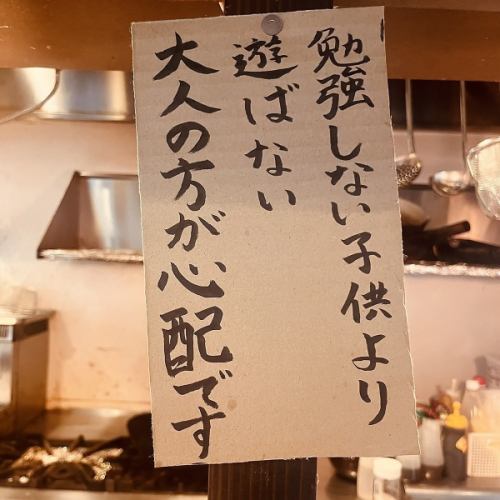 勉強しない子供より
遊ばない
大人の方が心配です